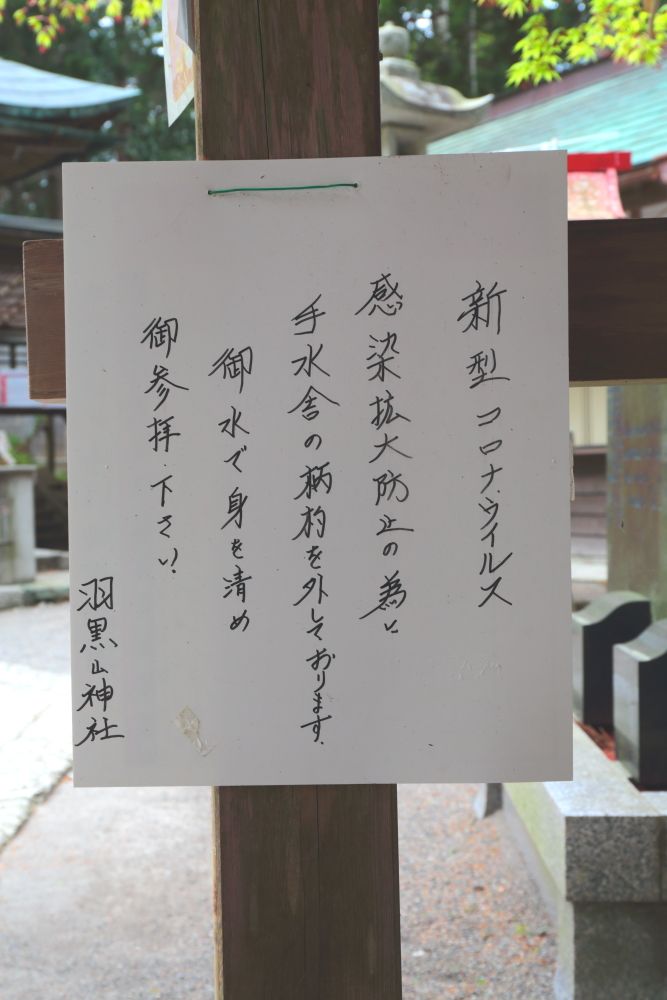 新型コロナウイルス
感染拡大防止の為に
手水舎の柄杓を外しております.
御水で身を清め
御参拝下さい?
羽黒山神社